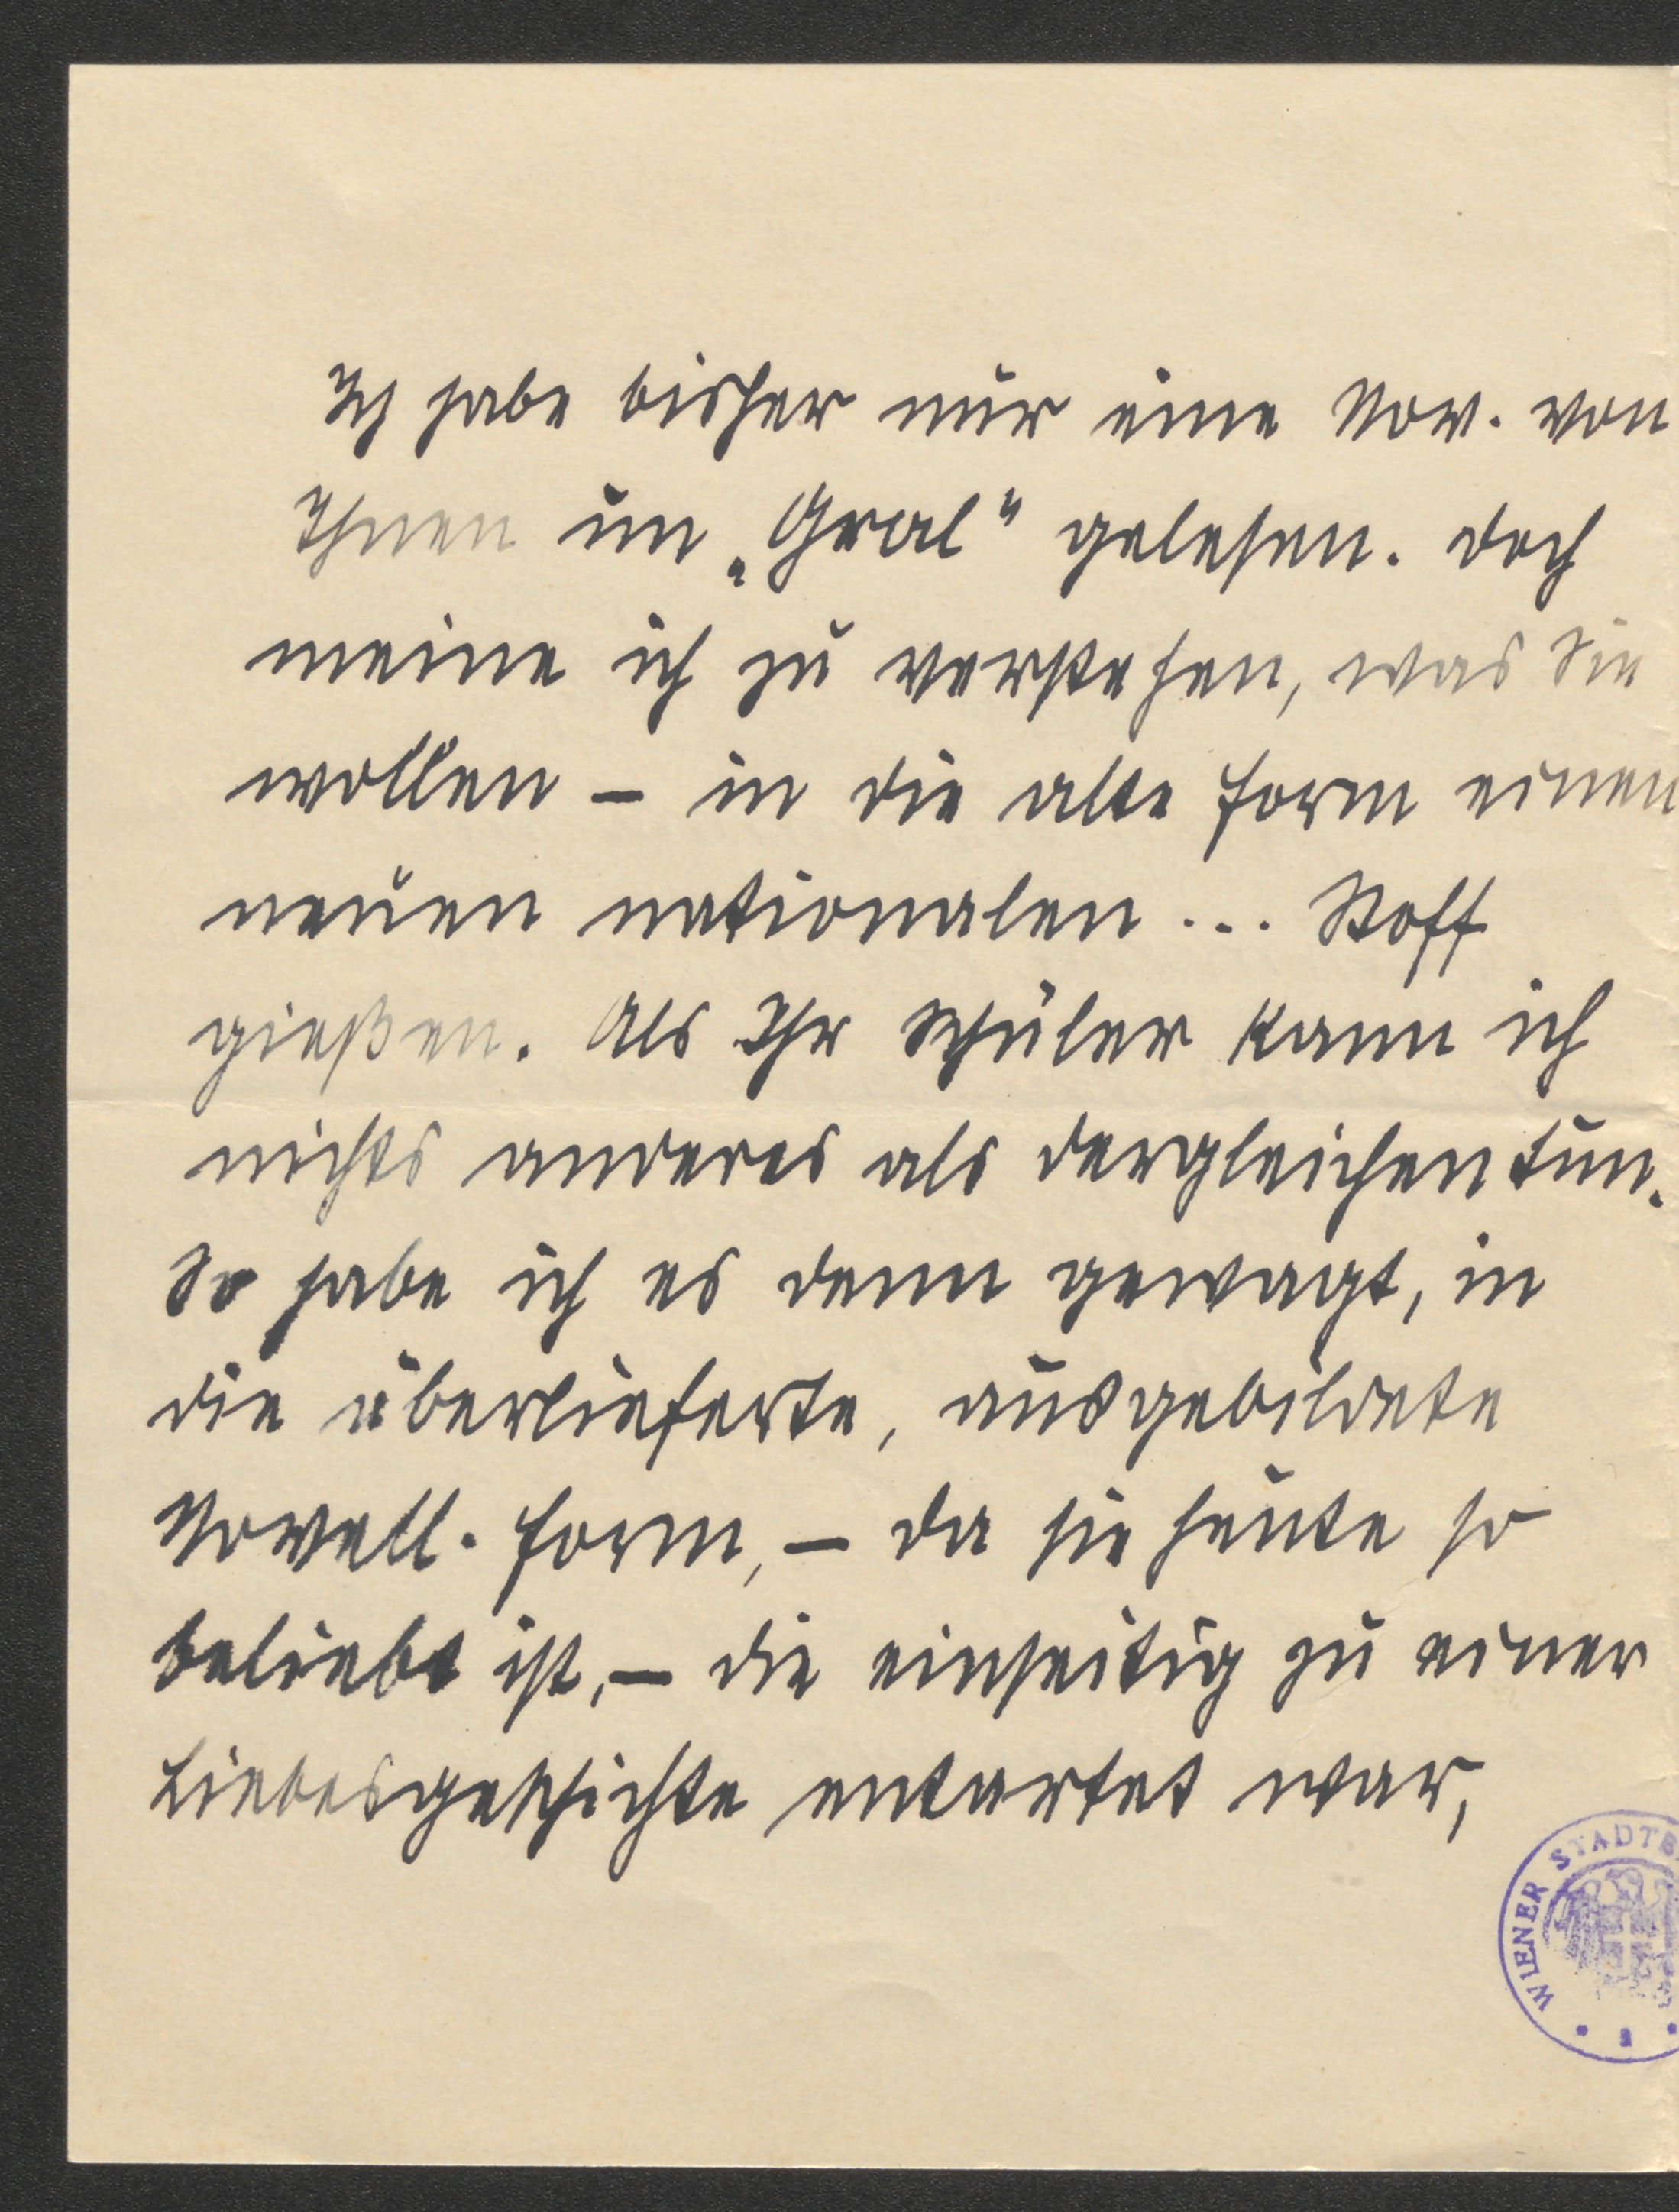 Ich habe bisher nur eine Nov. von
Ihnen im „Gral" gelesen. Doch
meine ich zu verstehen, was Sie
wollen – in die alte Form einen
neuen nationalen ... Stoff
gießen. Als Ihr Schüler kann ich
nichts anderes als dergleichen tun.
So habe ich es denn gewagt, in
die überlieferte, ausgebildete
Novell. Form, – da sie heute so
beliebt ist, – die einseitig zu einer
Liebesgeschichte entartet war,
WIENER STADTB